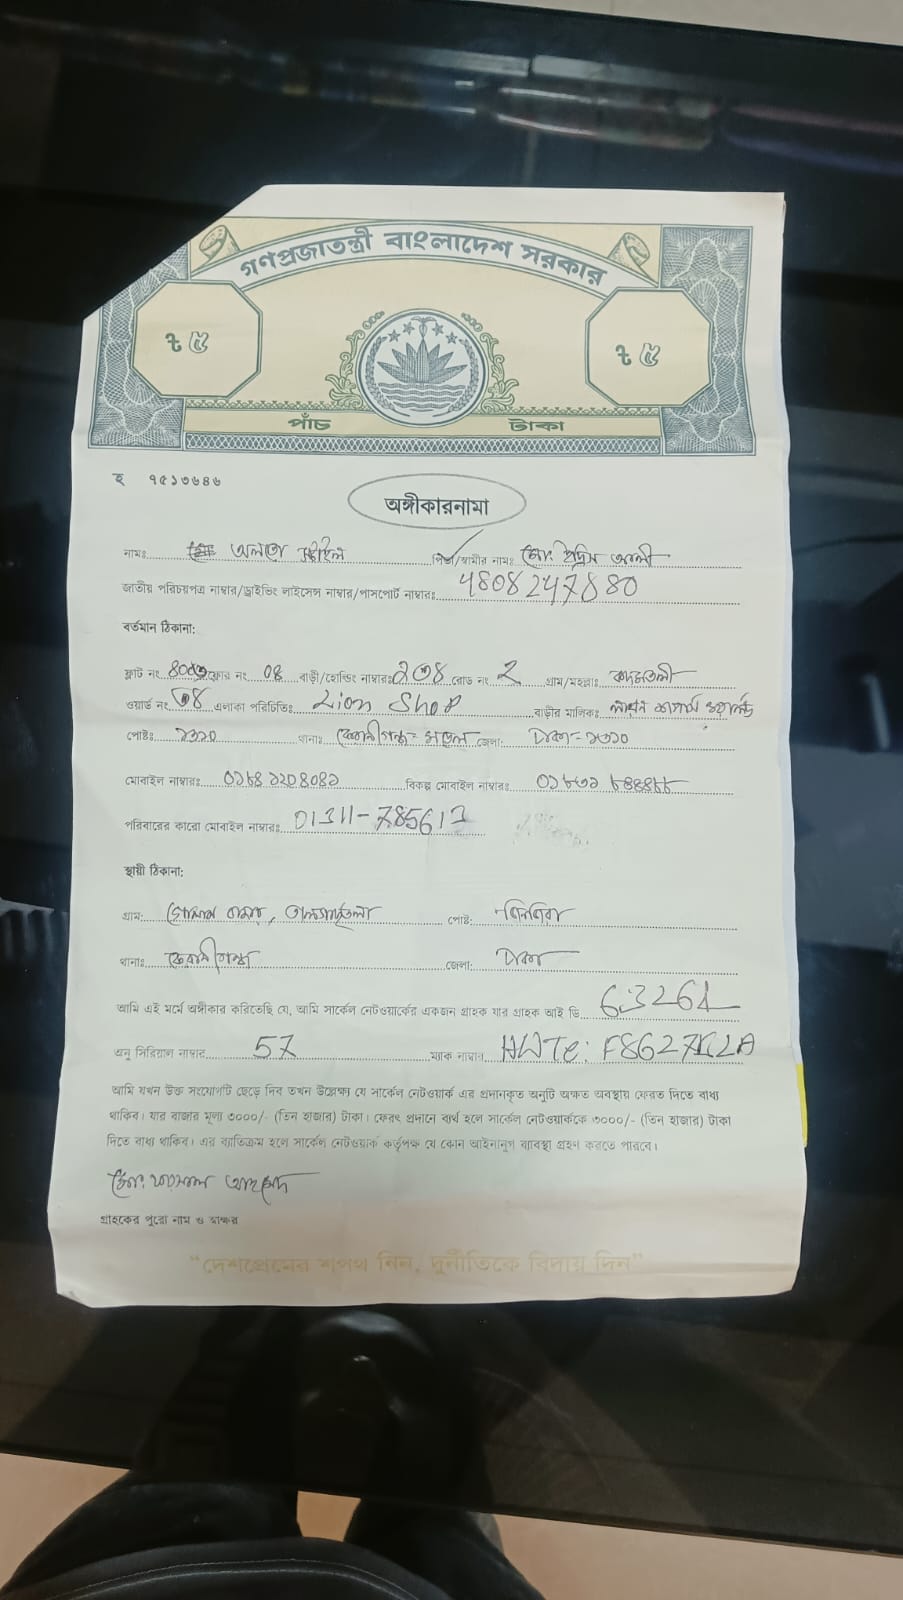 গণপ্রজাতন্ত্রী বাংলাদেশ সরকার
৳ ৫ ৳ ৫
পাঁচ টাকা
হ ৭৫১৩৬৪৬
অঙ্গীকারনামা
নামঃ পিতা/স্বামীর নামঃ মোঃ ইদ্রিস আলী
জাতীয় পরিচয়পত্র নাম্বার/ড্রাইভিং লাইসেন্স নাম্বার/পাসপোর্ট নাম্বারঃ 4808247880
বর্তমান ঠিকানা:
ফ্লাট নং ফ্লোর নং 08 বাড়ী/হোল্ডিং নাম্বারঃ রোড নং 2 গ্রাম/মহল্লাঃ কদমতলী
ওয়ার্ড নং এলাকা পরিচিতিঃ Lion Shop বাড়ীর মালিকঃ
পোষ্টঃ ১৩১০ থানাঃ কেরানীগঞ্জ- মডেল জেলা: ঢাকা-১৩১০
মোবাইল নাম্বারঃ বিকল্প মোবাইল নাম্বারঃ
পরিবারের কারো মোবাইল নাম্বারঃ 01311-785613
স্থায়ী ঠিকানা:
গ্রাম: পোষ্ট:
থানাঃ কেরানীগঞ্জ জেলা: ঢাকা
আমি এই মর্মে অঙ্গীকার করিতেছি যে, আমি সার্কেল নেটওয়ার্কের একজন গ্রাহক যার গ্রাহক আই ডি 63261
অনু সিরিয়াল নাম্বার 57 ম্যাক নাম্বার HWTC:
আমি যখন উক্ত সংযোগটি ছেড়ে দিব তখন উল্লেক্ষ্য যে সার্কেল নেটওয়ার্ক এর প্রদানকৃত অনুটি অক্ষত অবস্থায় ফেরত দিতে বাধ্য
থাকিব। যার বাজার মূল্য ৩০০০/- (তিন হাজার) টাকা। ফেরৎ প্রদানে ব্যর্থ হলে সার্কেল নেটওয়ার্ককে ৩০০০/- (তিন হাজার) টাকা
দিতে বাধ্য থাকিব। এর ব্যতিক্রম হলে সার্কেল নেটওয়ার্ক কর্তৃপক্ষ যে কোন আইনানুগ ব্যাবস্থা গ্রহণ করতে পারবে।
মোঃ ফয়সাল আহমেদ
গ্রাহকের পুরো নাম ও স্বাক্ষর
“দেশপ্রেমের শপথ নিন, দুর্নীতিকে বিদায় দিন”